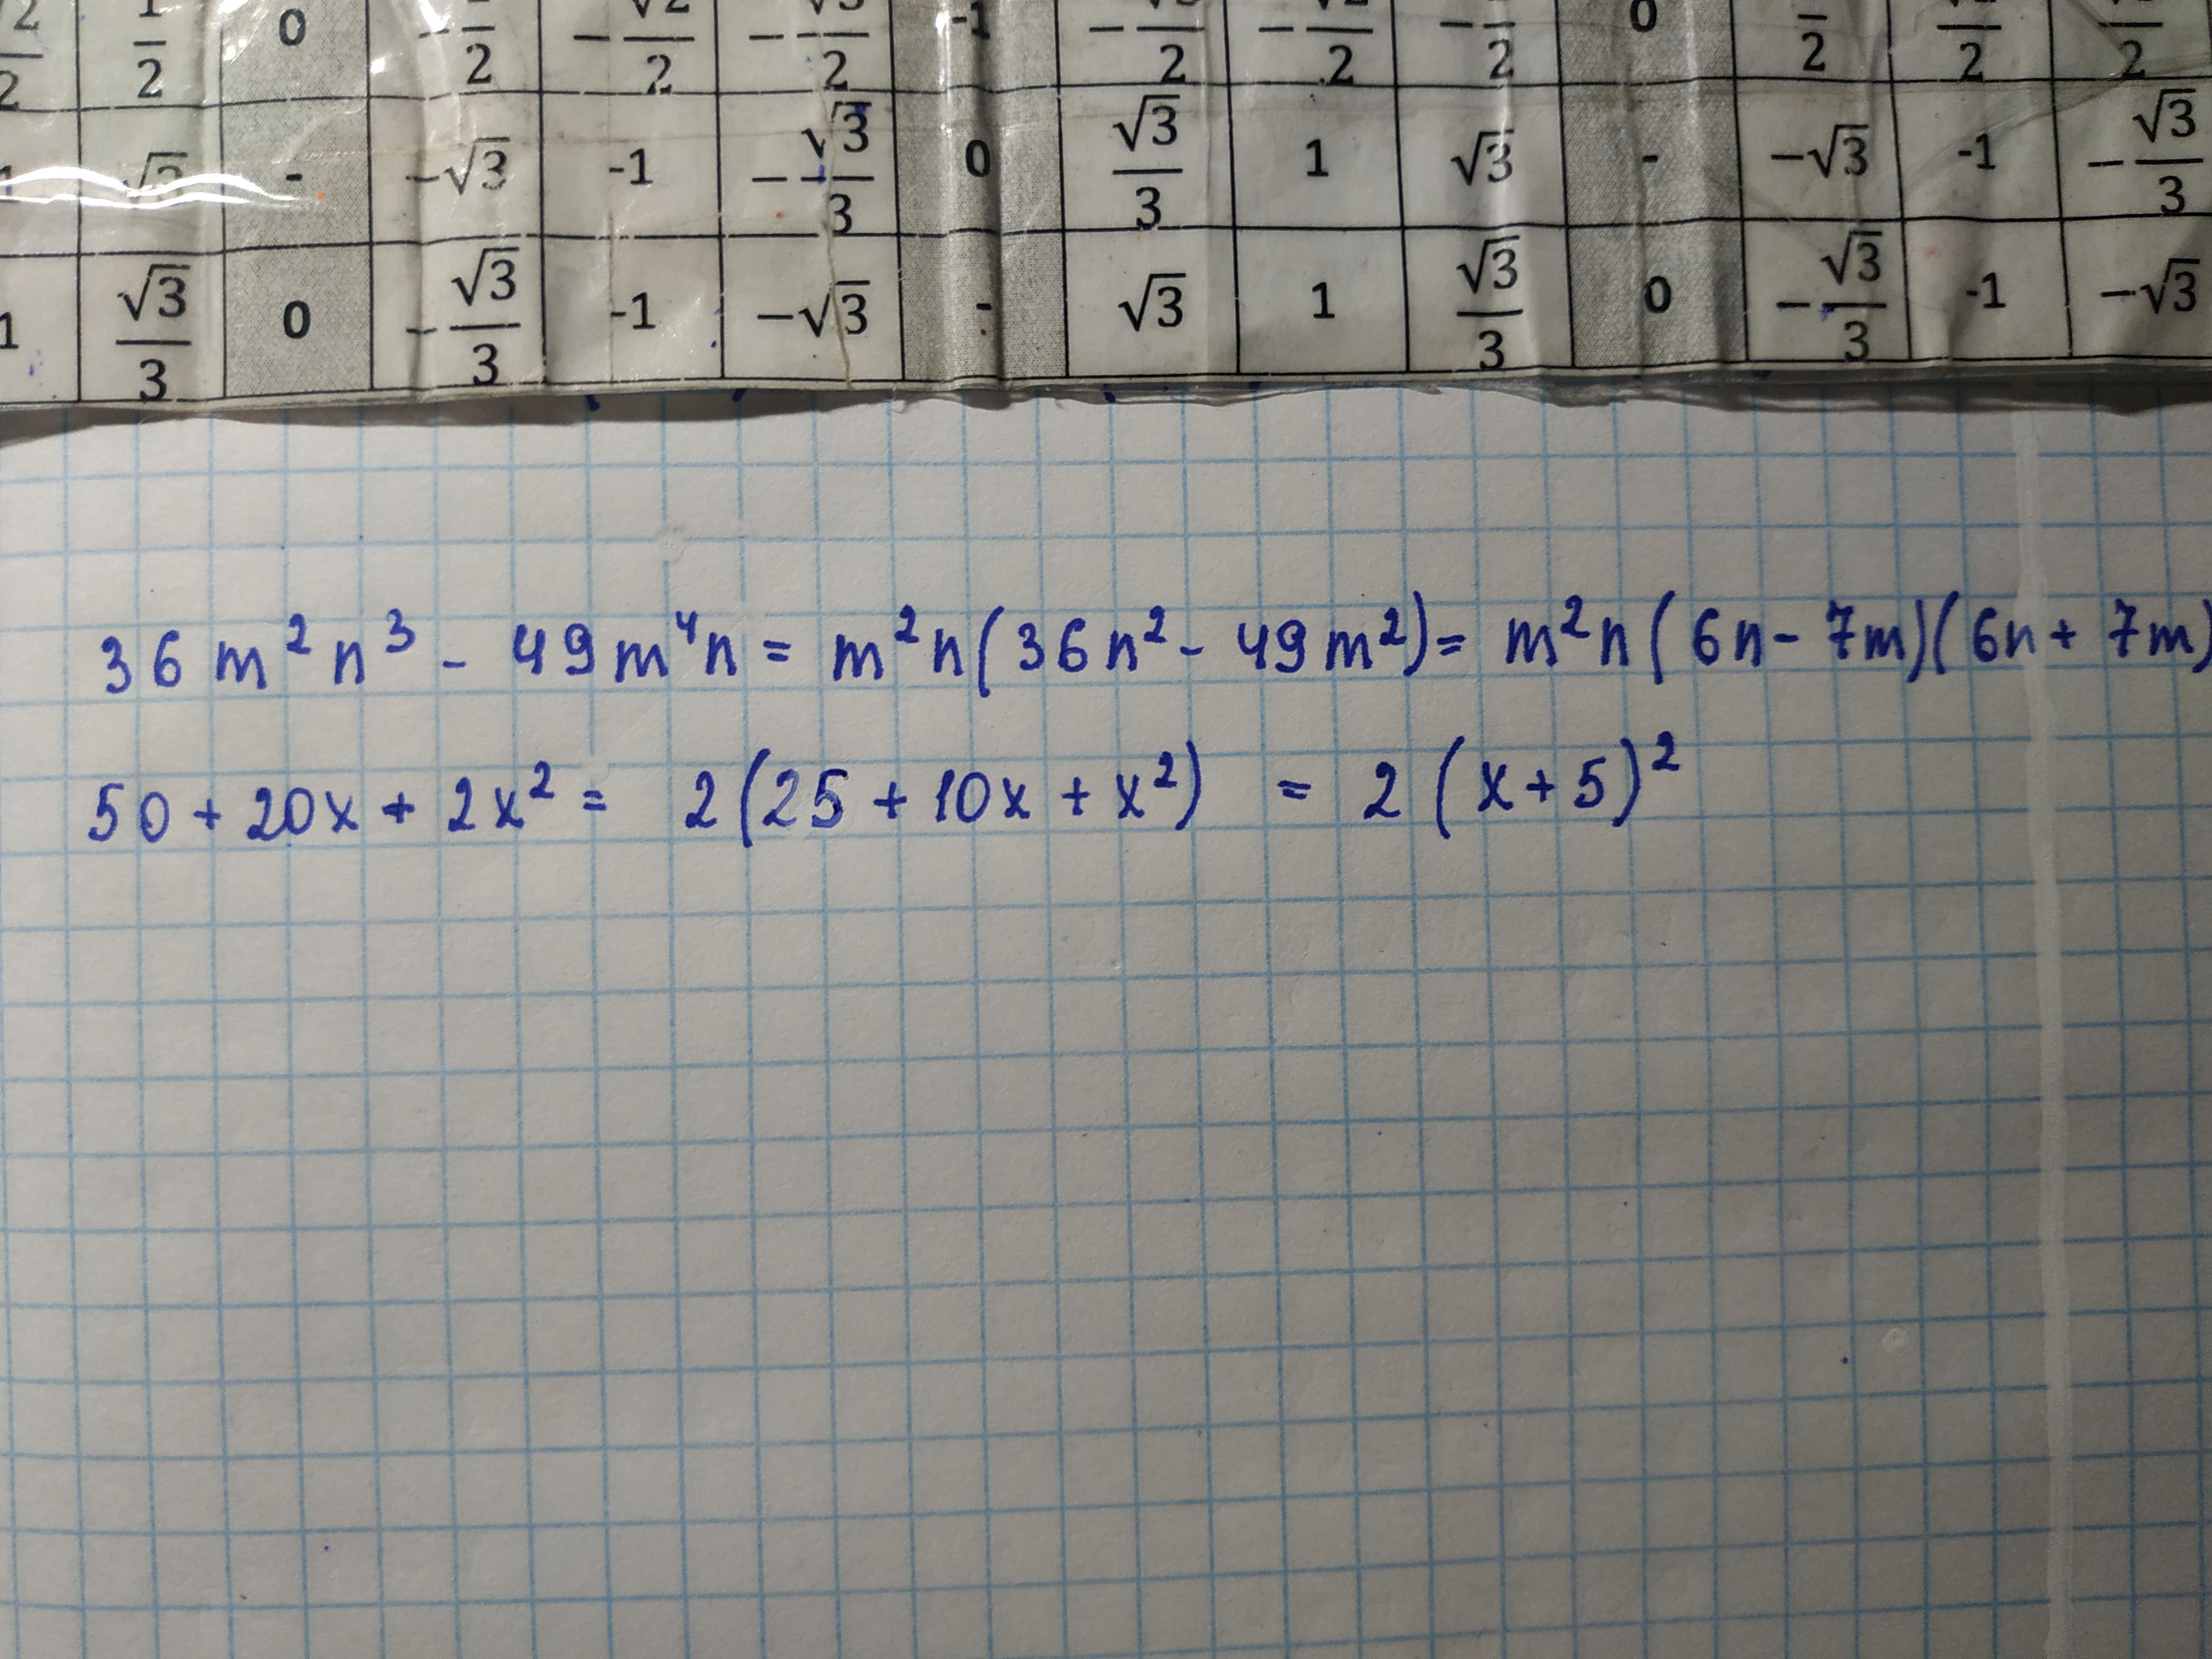 0 2 2 2 -1 2 2 2 0 2 2 2
- −√3 -1 −√3/3 0 √3/3 1 √3 - −√3 -1 −√3/3
1 √3/3 0 −√3/3 -1 −√3 - √3 1 √3/3 0 −√3/3 -1 −√3
36m²n³ - 49m⁴n = m²n(36n² - 49m²) = m²n(6n - 7m)(6n + 7m)
50 + 20x + 2x² = 2(25 + 10x + x²) = 2(x + 5)²